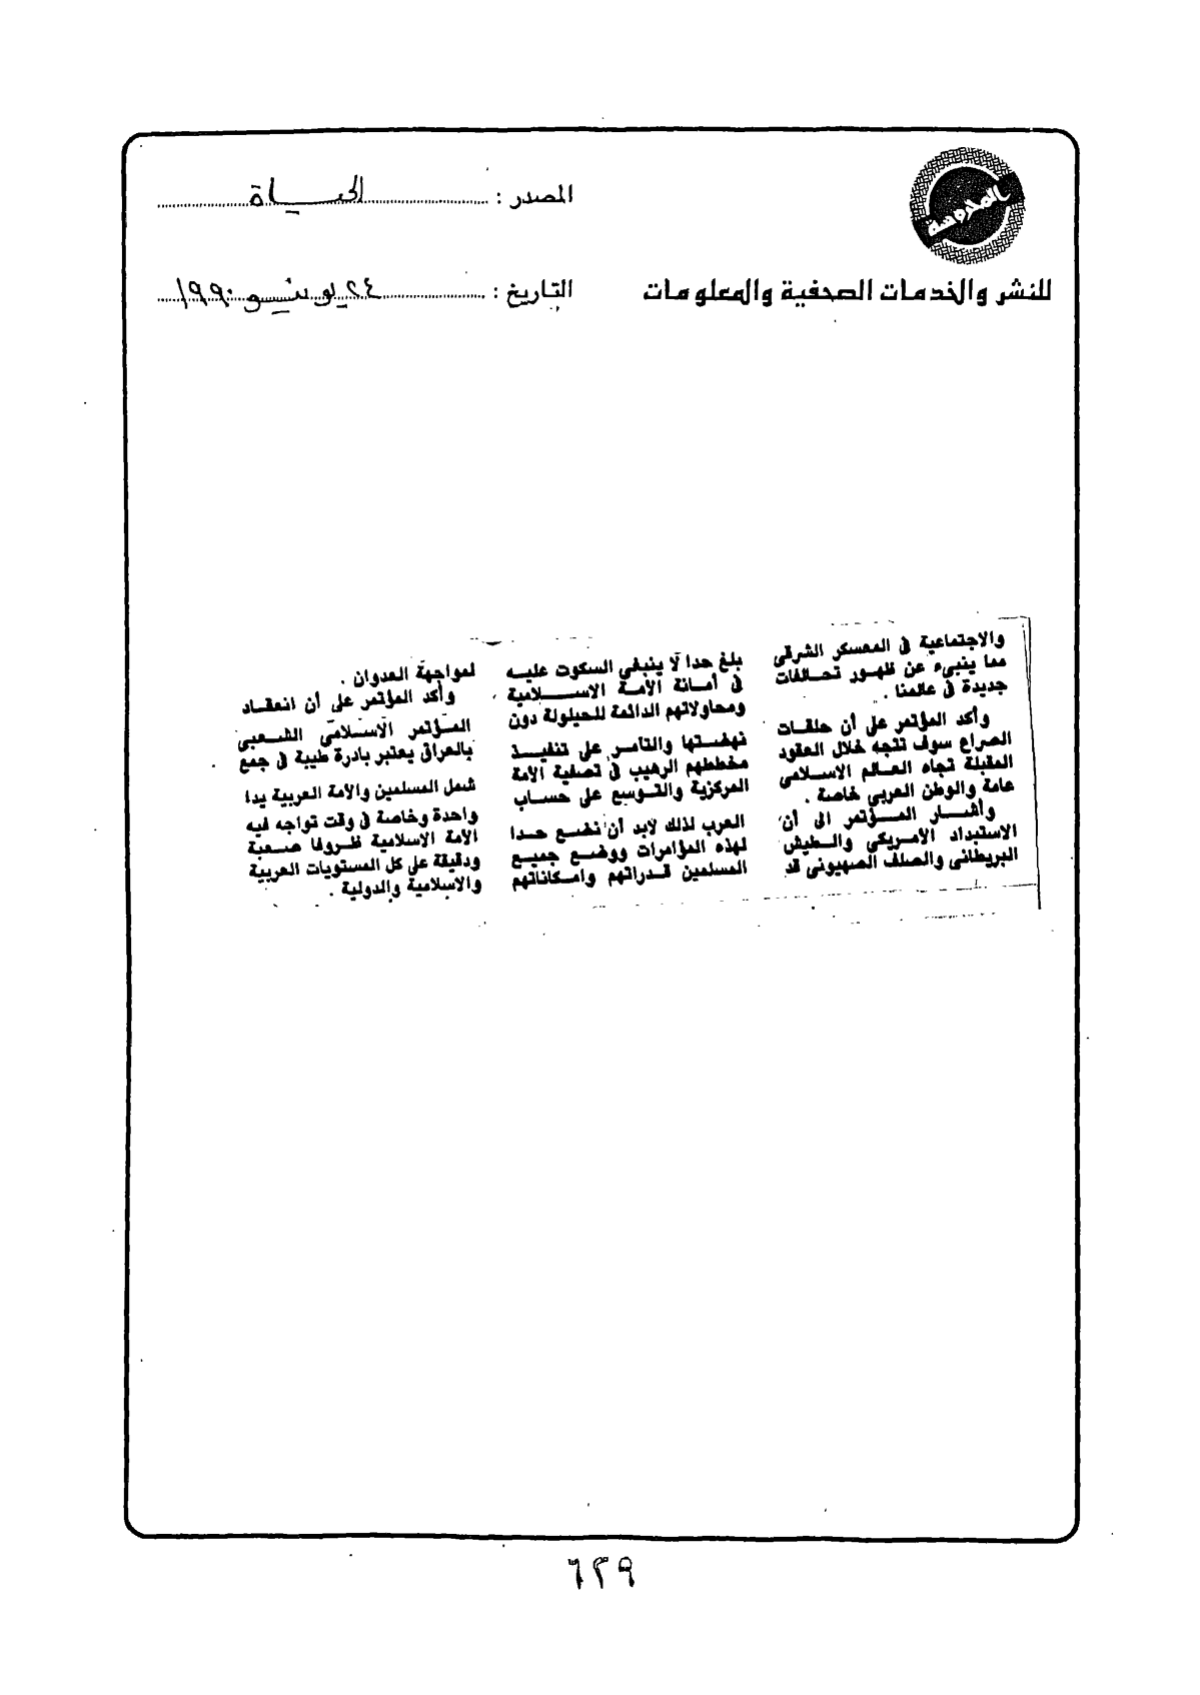 المحروسة
للنشر والخدمات الصحفية والمعلومات
المصدر : الحياة
التاريخ : ٢٤ يونيو ١٩٩٠
والاجتماعية فى المعسكر الشرقى
مما ينبىء عن ظهور تحالفات
جديدة فى عالمنا .
وأكد المؤتمر على أن حلقات
الصراع سوف تتجه خلال العقود
المقبلة تجاه العالم الاسلامى
عامة والوطن العربي خاصة .
وأشار المؤتمر الى أن
الاستبداد الامريكى والطيش
البريطانى والصلف الصهيونى قد
بلغ حدا لا ينبغى السكوت عليه
فى أمانة الأمة الاسلامية
ومحاولاتهم الدائمة للحيلولة دون
نهضتها والتامر على تنفيذ
مخططهم الرهيب فى تصفية الأمة
المركزية والتوسع على حساب
العرب لذلك لابد أن نضع حدا
لهذه المؤامرات ووضع جميع
المسلمين قدراتهم وامكاناتهم
لمواجهة العدوان .
وأكد المؤتمر على أن انعقاد
المؤتمر الاسلامى الشعبى
بالعراق يعتبر بادرة طيبة فى جمع
شمل المسلمين والأمة العربية يدا
واحدة وخاصة فى وقت تواجه فيه
الأمة الاسلامية ظروفا صعبة
ودقيقة على كل المستويات العربية
والاسلامية والدولية .
٦٣٩